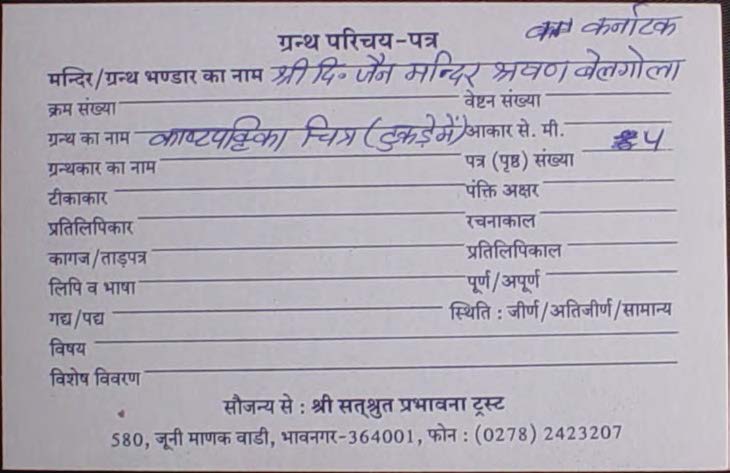 कर्नाटक
ग्रन्थ परिचय-पत्र
मन्दिर/ग्रन्थ भण्डार का नाम श्री दि॰ जैन मन्दिर श्रवण बेलगोला
क्रम संख्या वेष्टन संख्या
ग्रन्थ का नाम काष्टपट्टिका चित्र (टुकड़ेमें) आकार से. मी.
ग्रन्थकार का नाम पत्र (पृष्ठ) संख्या ५
टीकाकार पंक्ति अक्षर
प्रतिलिपिकार रचनाकाल
कागज/ताड़पत्र प्रतिलिपिकाल
लिपि व भाषा पूर्ण/अपूर्ण
गद्य/पद्य स्थिति : जीर्ण/अतिजीर्ण/सामान्य
विषय
विशेष विवरण
सौजन्य से : श्री सत्श्रुत प्रभावना ट्रस्ट
580, जूनी माणक वाडी, भावनगर-364001, फोन : (0278) 2423207